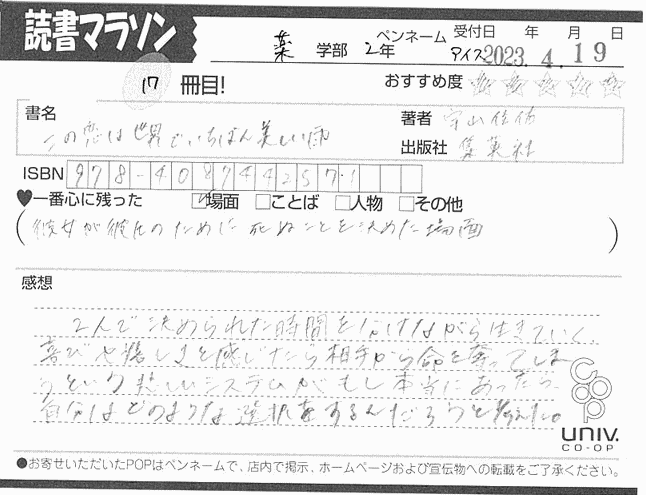 読書マラソン
薬 学部 2年 ペンネーム アイス 受付日 年 月 日
2023. 4. 19
17 冊目! おすすめ度 ☆☆☆☆☆
書名 この恋は世界でいちばん美しい雨
著者 宇山佳佑
出版社 集英社
ISBN 978-4087442571
♥一番心に残った ☑場面 □ことば □人物 □その他
(彼女が彼氏のために死ぬことを決めた場面)
感想
2人で決められた時間を分けながら生きていく。
喜びや悲しみを感じたら相手から命を奪ってしま
うという悲しいシステムがもし本当にあったら、
自分はどのような選択をするんだろうと考えた。
coop
UNIV.
CO-OP
●お寄せいただいたPOPはペンネームで、店内で掲示、ホームページおよび宣伝物への転載をご了承ください。